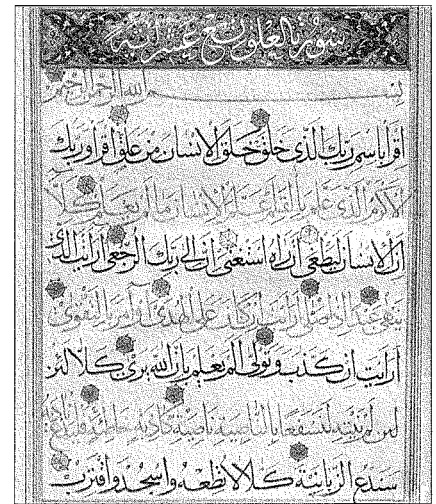 سورة العلق تسع عشر آية
بسم الله الرحمن الرحيم
اقرأ باسم ربك الذى خلق خلق الانسان من علق اقرأ وربك
الاكرم الذى علم بالقلم علم الانسان ما لم يعلم كلا
ان الانسان ليطغى ان راه استغنى ان الى ربك الرجعى ارايت الذى
ينهى عبدا اذا صلى ارايت ان كان على الهدى او امر بالتقوى
ارايت ان كذب وتولى الم يعلم بان الله يرى كلا لئن
لئن لم ينته لنسفعا بالناصية ناصية كاذبة خاطئة فليدع ناديه
سندع الزبانية كلا لا تطعه واسجد واقترب